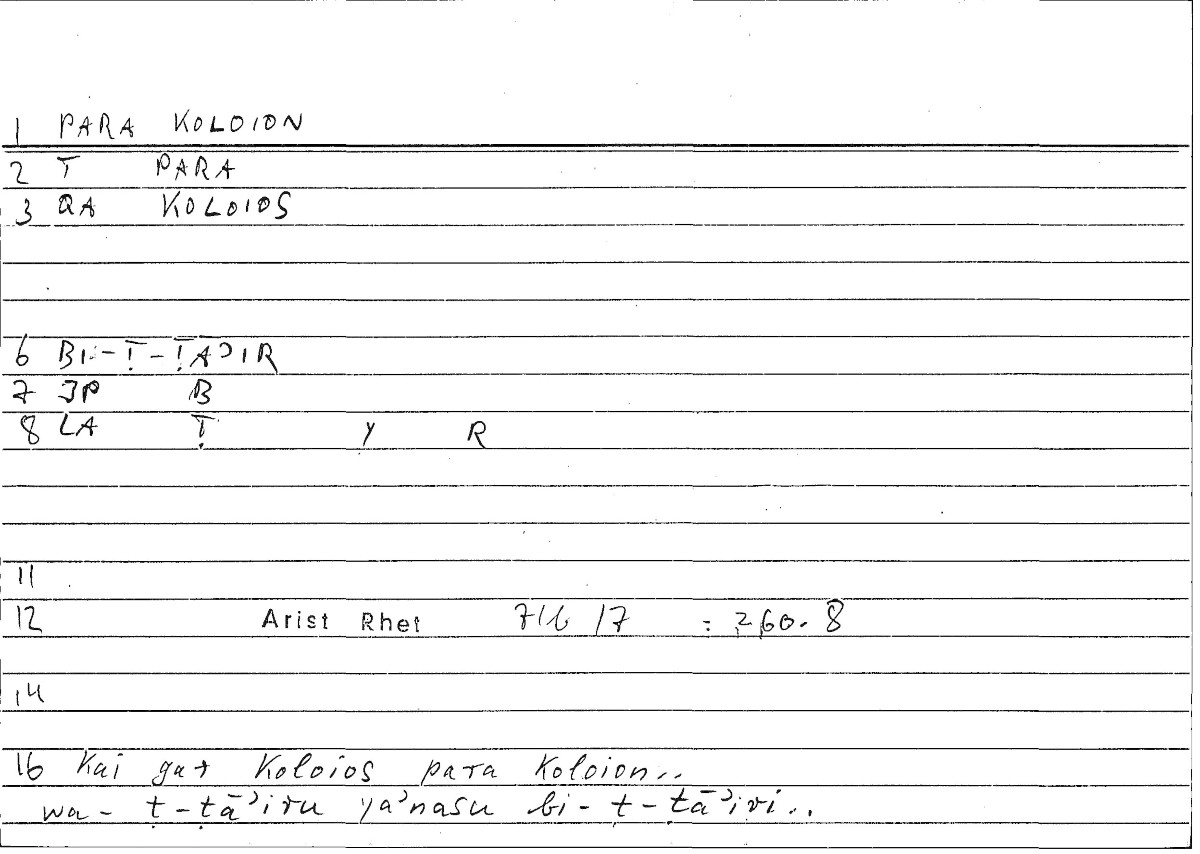 1 PARA KOLOION
2 T PARA
3 QA KOLOIOS
6 BI-Ṭ-ṬAʾIR
7 JP B
8 LA Ṭ Y R
11
12 Arist Rhet 71b 17 = 260.8
14
16 Kai gar Koloios para Koloion..
wa- ṭ-ṭāʾiru yaʾnasu bi-ṭ-ṭāʾiri..